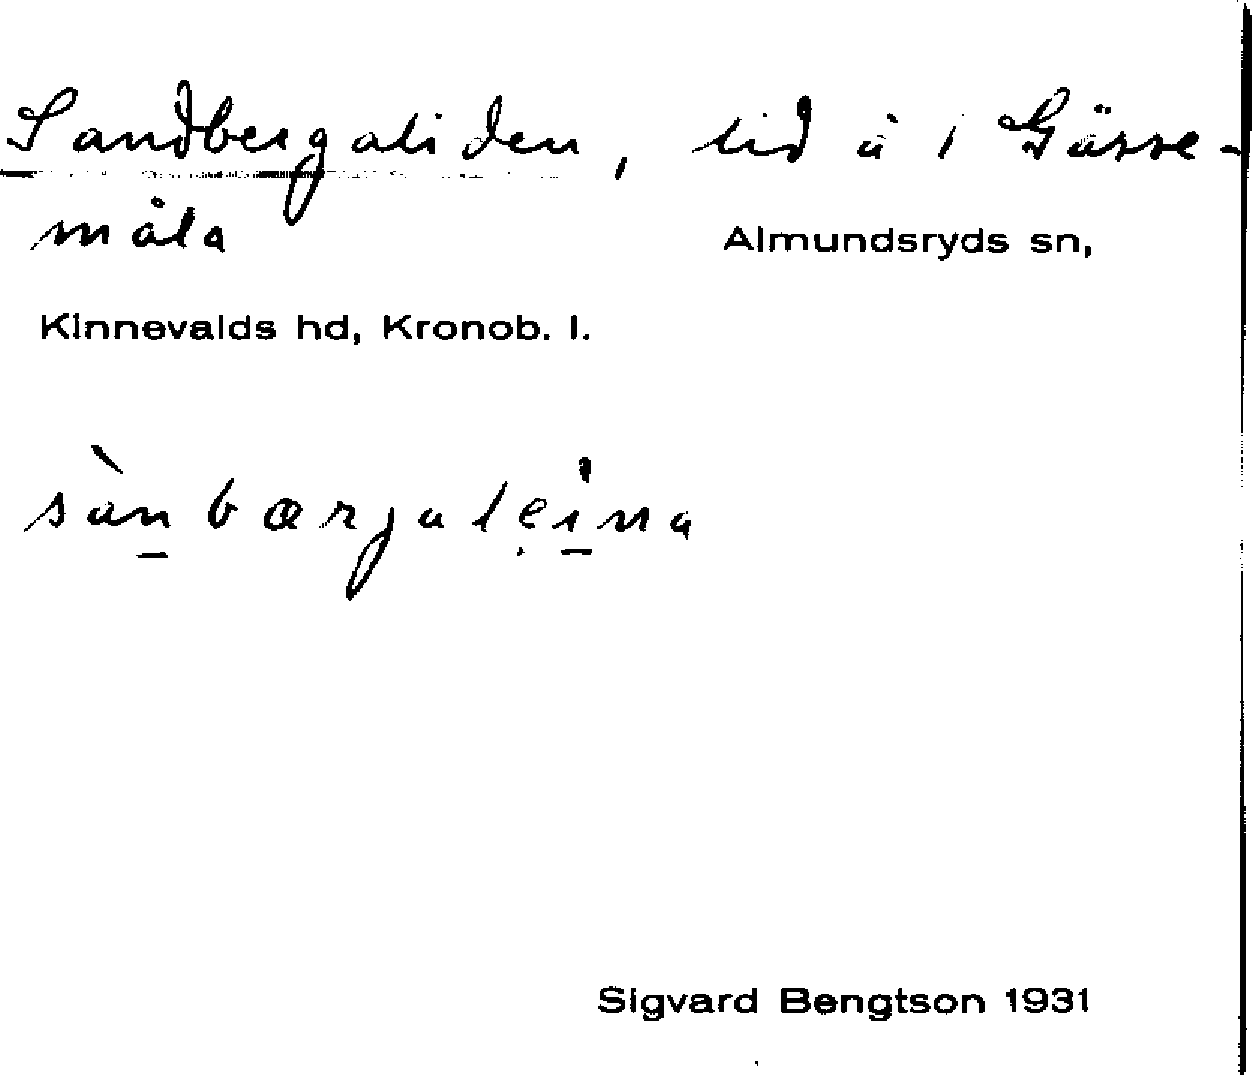 Sandbergaliden, lid å 1 Gässe-
måla
Almundsryds sn,
Kinnevalds hd, Kronob. l.
sàn bærjaleina
Sigvard Bengtson 1931